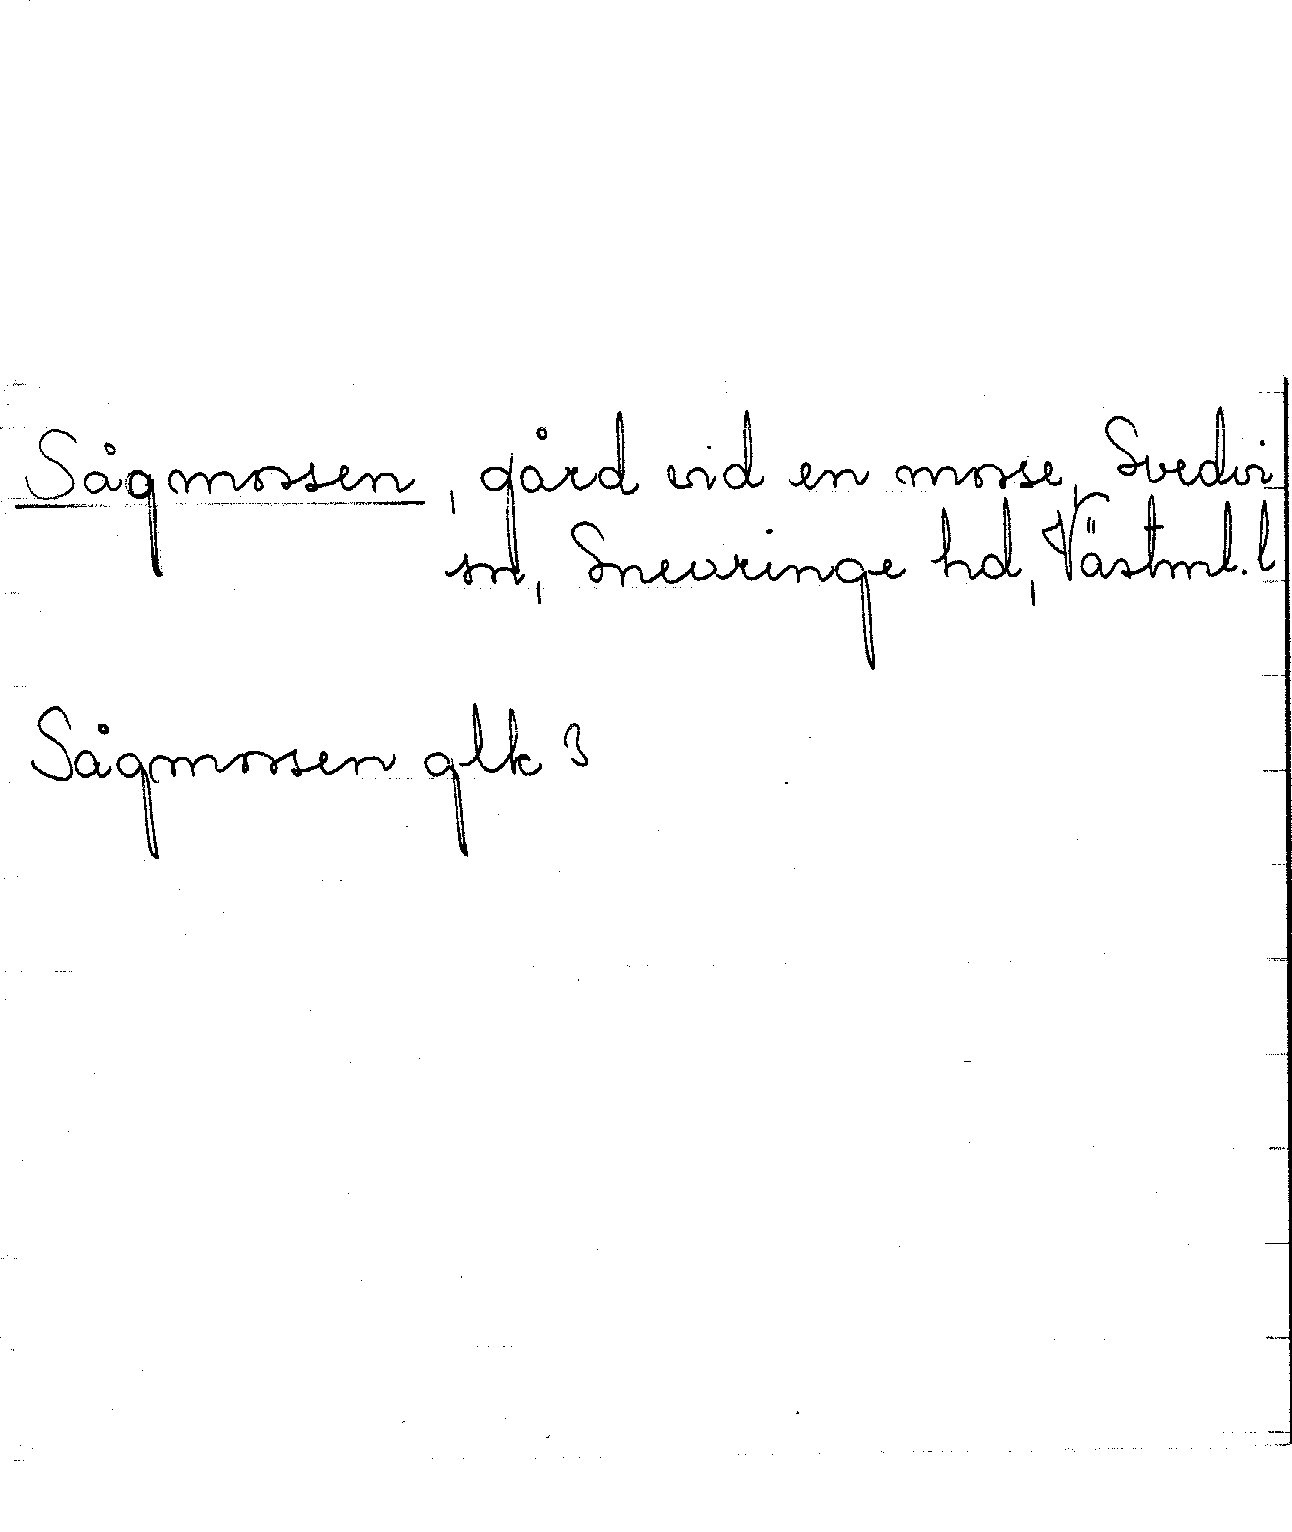 Sågmossen, gård vid en mosse, Svedvi
sn, Snevringe hd, Västml. l
Sågmossen glk 3